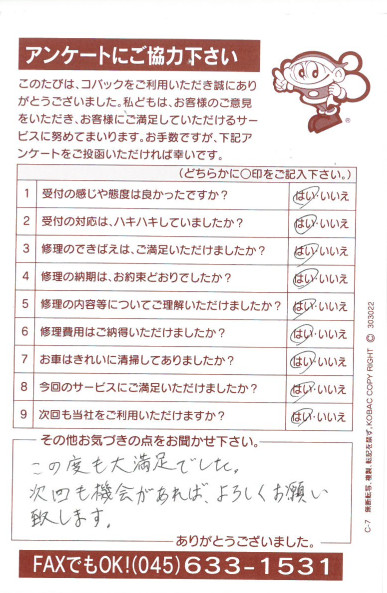 アンケートにご協力下さい
このたびは、コバックをご利用いただき誠にあり
がとうございました。私どもは、お客様のご意見
をいただき、お客様にご満足していただけるサー
ビスに努めてまいります。お手数ですが、下記ア
ンケートをご投函いただければ幸いです。
®
(どちらかに〇印をご記入下さい。)
1 受付の感じや態度は良かったですか? はい・いいえ
2 受付の対応は、ハキハキしていましたか? はい・いいえ
3 修理のできばえは、ご満足いただけましたか? はい・いいえ
4 修理の納期は、お約束どおりでしたか? はい・いいえ
5 修理の内容等についてご理解いただけましたか? はい・いいえ
6 修理費用はご納得いただけましたか? はい・いいえ
7 お車はきれいに清掃してありましたか? はい・いいえ
8 今回のサービスにご満足いただけましたか? はい・いいえ
9 次回も当社をご利用いただけますか? はい・いいえ
その他お気づきの点をお聞かせ下さい。
この度も大満足でした。
次回も機会があれば、よろしくお願い
致します。
ありがとうございました。
FAXでもOK!(045)633-1531
C-7 無断転写、複製、転記を禁ず。KOBAC COPY RIGHT © 303022